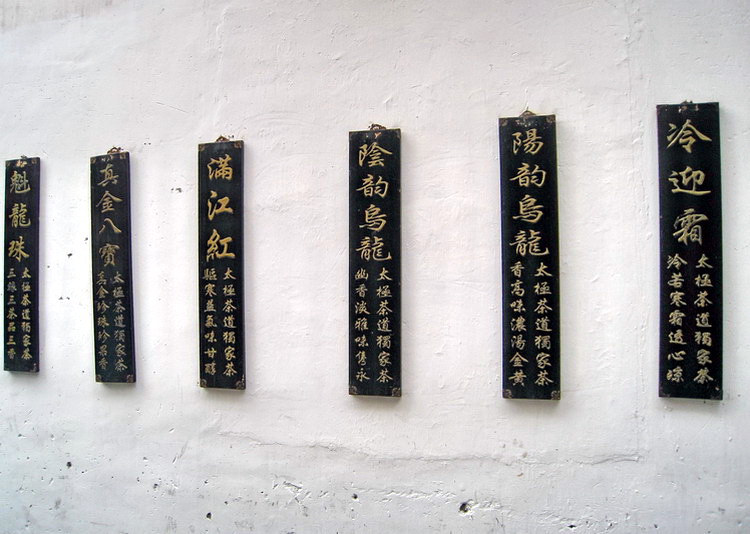 冷迎霜
太極茶道獨家茶
冷若寒霜透心
陽韵烏龍
太極茶道獨家茶
香高味濃湯金黃
陰韵烏龍
太極茶道獨家茶
幽香淡雅味雋永
滿江紅
太極茶道獨家茶
驅寒益氣味甘醇
真金八寶
太極茶道獨家茶
真金珍珠珍
魁龍珠
太極茶道獨家茶
三三茶品三香